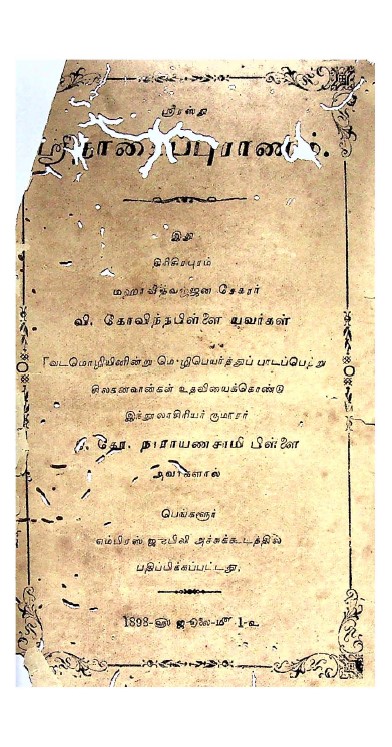 ஸ்ரீரஸ்து
இது
திரிசிரபுரம்
மஹாவித்வஜ்ஜன சேகரர்
வி. கோவிந்தபிள்ளை யவர்கள்
வடமொழியினின்று மொழிபெயர்த்துப் பாடப்பெற்று
சிலகனவான்கள் உதவியைக்கொண்டு
இந்நூலாசிரியர் குமாரர்
கோ. நாராயணசாமி பிள்ளை
அவர்களால்
பெங்களூர்
எம்பிரஸ் ஜுபிலி அச்சுக்கூடத்தில்
பதிப்பிக்கப்பட்டது.
1898-௵ ஜூலை-௴ 1-உ